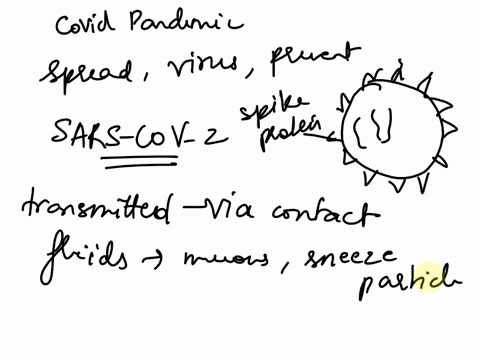 Covid Pandemic
spread, virus, prevent
spike
protein
SARS-COV-2
transmitted - via contact
fluids → mucous, sneeze
particle